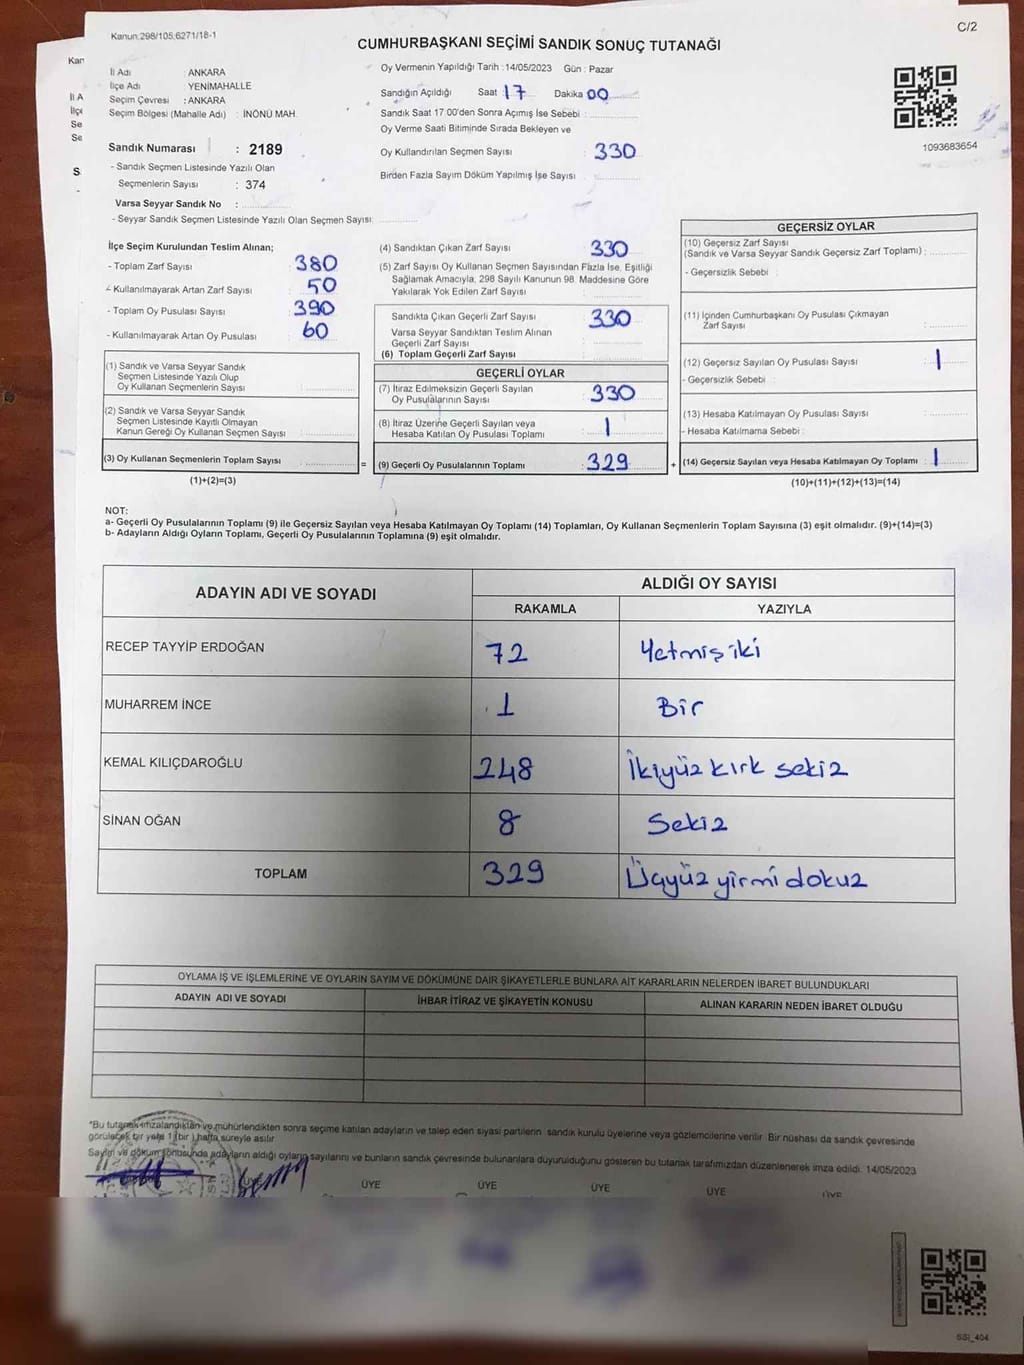 Kanun:298/105;6271/18-1
C/2
CUMHURBAŞKANI SEÇİMİ SANDIK SONUÇ TUTANAĞI
İl Adı : ANKARA
İlçe Adı YENİMAHALLE
Seçim Çevresi : ANKARA
Seçim Bölgesi (Mahalle Adı) : İNÖNÜ MAH.
Sandık Numarası : 2189
- Sandık Seçmen Listesinde Yazılı Olan
Seçmenlerin Sayısı : 374
Varsa Seyyar Sandık No :
- Seyyar Sandık Seçmen Listesinde Yazılı Olan Seçmen Sayısı:
Oy Vermenin Yapıldığı Tarih :14/05/2023 Gün : Pazar
Sandığın Açıldığı Saat 17 Dakika 00
Sandık Saat 17:00'den Sonra Açılmış İse Sebebi :
Oy Verme Saati Bitiminde Sırada Bekleyen ve
Oy Kullandırılan Seçmen Sayısı : 330
Birden Fazla Sayım Döküm Yapılmış İse Sayısı :
1093683654
İlçe Seçim Kurulundan Teslim Alınan;
- Toplam Zarf Sayısı : 380
- Kullanılmayarak Artan Zarf Sayısı : 50
- Toplam Oy Pusulası Sayısı : 390
- Kullanılmayarak Artan Oy Pusulası : 60
(1) Sandık ve Varsa Seyyar Sandık
Seçmen Listesinde Yazılı Olup
Oy Kullanan Seçmenlerin Sayısı :
(2) Sandık ve Varsa Seyyar Sandık
Seçmen Listesinde Kayıtlı Olmayan
Kanun Gereği Oy Kullanan Seçmen Sayısı :
(3) Oy Kullanan Seçmenlerin Toplam Sayısı :
(1)+(2)=(3)
(4) Sandıktan Çıkan Zarf Sayısı : 330
(5) Zarf Sayısı Oy Kullanan Seçmen Sayısından Fazla İse, Eşitliği
Sağlamak Amacıyla, 298 Sayılı Kanunun 98. Maddesine Göre
Yakılarak Yok Edilen Zarf Sayısı :
Sandıkta Çıkan Geçerli Zarf Sayısı : 330
Varsa Seyyar Sandıktan Teslim Alınan
Geçerli Zarf Sayısı :
(6) Toplam Geçerli Zarf Sayısı :
GEÇERLİ OYLAR
(7) İtiraz Edilmeksizin Geçerli Sayılan
Oy Pusulalarının Sayısı : 330
(8) İtiraz Üzerine Geçerli Sayılan veya
Hesaba Katılan Oy Pusulası Toplamı : 1
= (9) Geçerli Oy Pusulalarının Toplamı : 329
GEÇERSİZ OYLAR
(10) Geçersiz Zarf Sayısı
(Sandık ve Varsa Seyyar Sandık Geçersiz Zarf Toplamı) :
- Geçersizlik Sebebi :
(11) İçinden Cumhurbaşkanı Oy Pusulası Çıkmayan
Zarf Sayısı :
(12) Geçersiz Sayılan Oy Pusulası Sayısı : 1
- Geçersizlik Sebebi :
(13) Hesaba Katılmayan Oy Pusulası Sayısı :
- Hesaba Katılmama Sebebi :
+ (14) Geçersiz Sayılan veya Hesaba Katılmayan Oy Toplamı : 1
(10)+(11)+(12)+(13)=(14)
NOT:
a- Geçerli Oy Pusulalarının Toplamı (9) ile Geçersiz Sayılan veya Hesaba Katılmayan Oy Toplamı (14) Toplamları, Oy Kullanan Seçmenlerin Toplam Sayısına (3) eşit olmalıdır. (9)+(14)=(3)
b- Adayların Aldığı Oyların Toplamı, Geçerli Oy Pusulalarının Toplamına (9) eşit olmalıdır.
ADAYIN ADI VE SOYADI ALDIĞI OY SAYISI
RAKAMLA YAZIYLA
RECEP TAYYİP ERDOĞAN 72 Yetmiş iki
MUHARREM İNCE 1 Bir
KEMAL KILIÇDAROĞLU 248 İkiyüz kırk sekiz
SİNAN OĞAN 8 Sekiz
TOPLAM 329 Üçyüz yirmi dokuz
OYLAMA İŞ VE İŞLEMLERİNE VE OYLARIN SAYIM VE DÖKÜMÜNE DAİR ŞİKAYETLERLE BUNLARA AİT KARARLARIN NELERDEN İBARET BULUNDUKLARI
ADAYIN ADI VE SOYADI İHBAR İTİRAZ VE ŞİKAYETİN KONUSU ALINAN KARARIN NEDEN İBARET OLDUĞU
*Bu tutanak imzalandıktan ve mühürlendikten sonra seçime katılan adayların ve talep eden siyasi partilerin sandık kurulu üyelerine veya gözlemcilerine verilir. Bir nüshası da sandık çevresinde
görülecek bir yere 1 (bir ) hafta süreyle asılır
Sayım ve döküm sonucunda adayların aldığı oyların sayılarını ve bunların sandık çevresinde bulunanlara duyurulduğunu gösteren bu tutanak tarafımızdan düzenlenerek imza edildi. 14/05/2023
ÜYE ÜYE ÜYE ÜYE ÜYE
SSİ_404